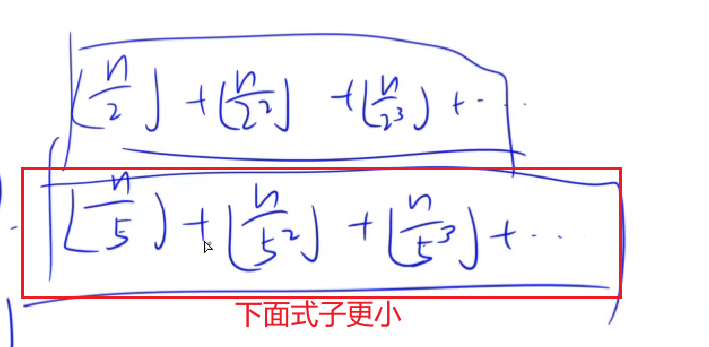 ⌊n/2⌋ + ⌊n/2²⌋ + ⌊n/2³⌋ + ...
⌊n/5⌋ + ⌊n/5²⌋ + ⌊n/5³⌋ + ...
下面式子更小